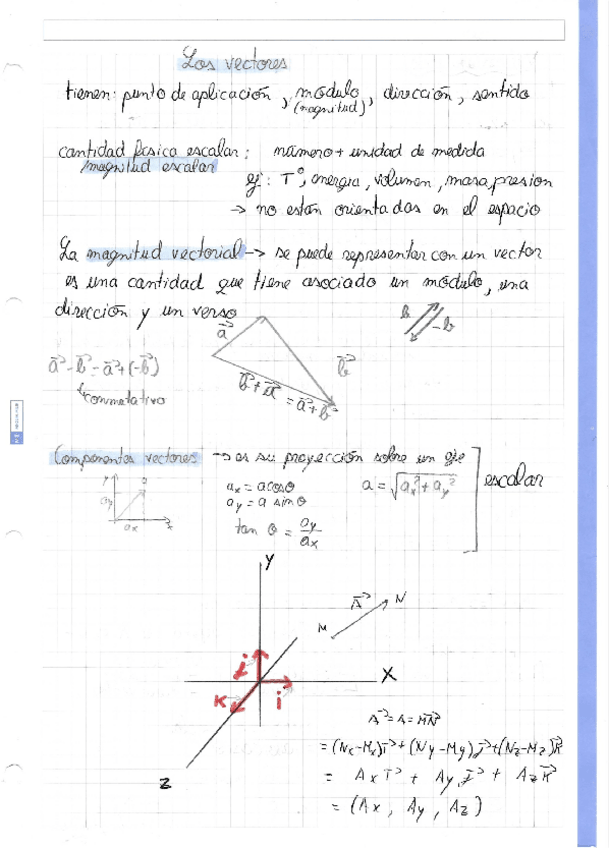 Los vectores
tienen: punto de aplicación, módulo, dirección, sentido
(magnitud)
cantidad física escalar: número + unidad de medida
magnitud escalar
ej: T°, energia, volumen, masa, presion
→ no están orientadas en el espacio
La magnitud vectorial → se puede representar con un vector
es una cantidad que tiene asociado un módulo, una
dirección y un verso
a⃗
b
-b
b⃗
a⃗ - b⃗ = a⃗ + (-b⃗)
b⃗ + a⃗ = a⃗ + b⃗
conmutativo
Componentes vectores → es su proyección sobre un eje
escalar
y
a
ay
ax
x
ax = a cos θ
ay = a sin θ
a = √ax² + ay²
tan θ = ay/ax
Y
A⃗
N
M
j
X
K
i
Z
A⃗ = A = MN⃗
= (Nx - Mx) i⃗ + (Ny - My) j⃗ + (Nz - Mz) K⃗
= Ax i⃗ + Ay j⃗ + Az K⃗
= (Ax, Ay, Az)